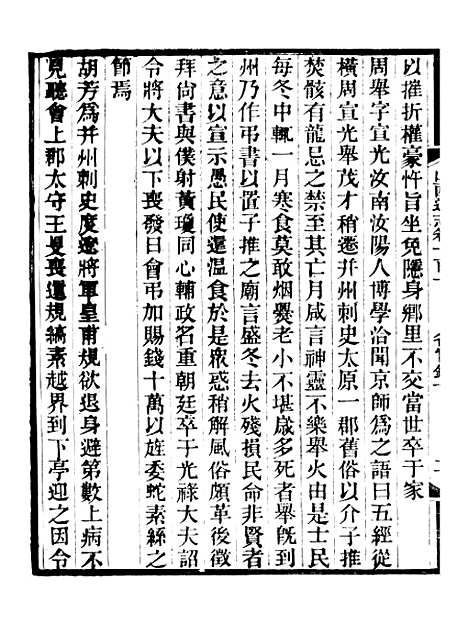 以摧折權豪忤旨坐免隱身鄉里不交當世卒于家
周舉字宣光汝南汝陽人博學洽聞京師為之語曰五經從
橫周宣光舉茂才稍遷并州刺史太原一郡舊俗以介子推
焚骸有龍忌之禁至其亡月咸言神靈不樂舉火由是士民
每冬中輒一月寒食莫敢烟爨老小不堪歲多死者舉旣到
州乃作弔書以置子推之廟言盛冬去火殘損民命非賢者
之意以宣示愚民使還温食於是眾惑稍解風俗頗革後徵
拜尚書與僕射黃瓊同心輔政名重朝廷卒于光祿大夫詔
令將大夫以下喪發日會弔加賜錢十萬以旌委蛇素絲之
節焉
胡芳爲并州刺史度遼將軍皇甫規欲退身避第數上病不
見聽會上郡太守王旻喪還規縞素越界到下亭迎之因令